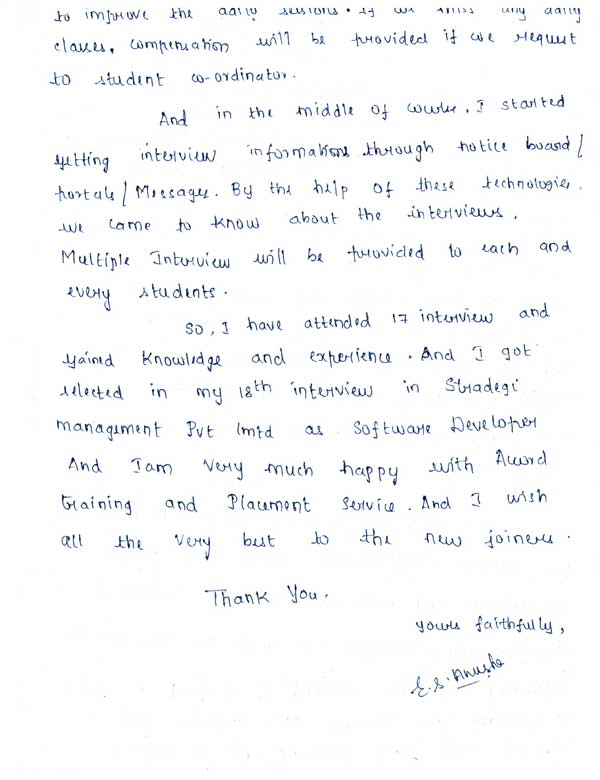 to improve the daily sessions. If we miss any daily
classes, compensation will be provided if we request
to student co-ordinator.
And in the middle of course, I started
getting interview informations through notice board/
portals/Messages. By the help of these technologies,
we came to know about the interviews.
Multiple Interview will be provided to each and
every students.
So, I have attended 17 interview and
gained knowledge and experience. And I got
selected in my 18th interview in Stradegi
management Pvt lmtd as Software Developer
And I am very much happy with Accord
training and Placement Service. And I wish
all the very best to the new joiners.
Thank You.
yours faithfully,
E.S. Anusha